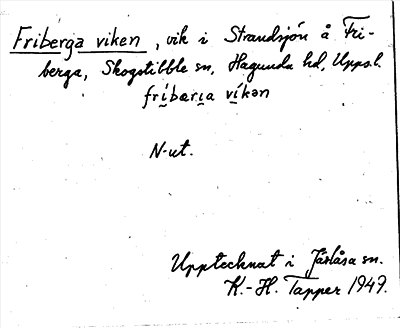 Friberga viken, vik i Strandsjön å Fri-
berga, Skogstibble sn, Hagunda hd, Upps.l.
fribæria vikən
N-ut.
Upptecknat i Järlåsa sn.
K.-H. Tapper 1949.